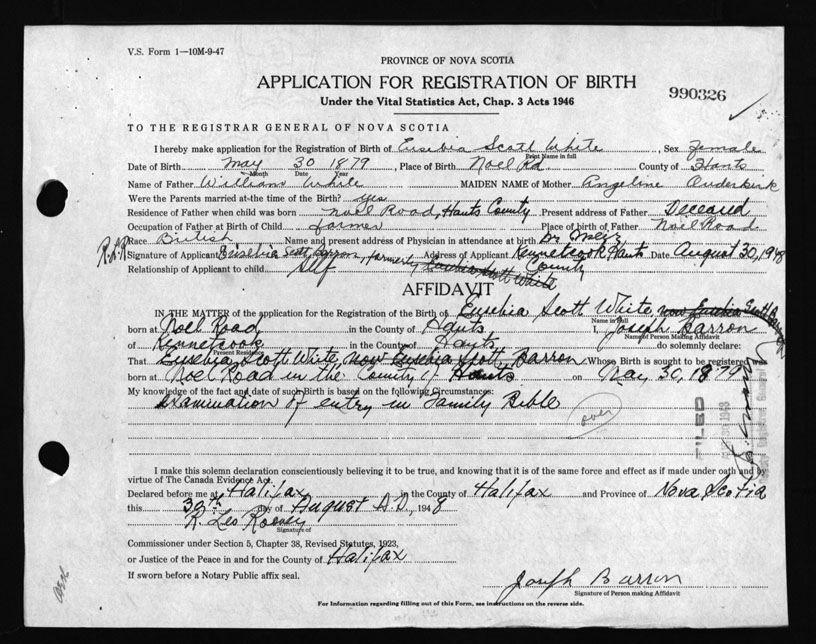 V.S. Form 1—10M-9-47
PROVINCE OF NOVA SCOTIA
APPLICATION FOR REGISTRATION OF BIRTH
990326
Under the Vital Statistics Act, Chap. 3 Acts 1946
TO THE REGISTRAR GENERAL OF NOVA SCOTIA
I hereby make application for the Registration of Birth of Eusebia Scott White, Sex female
Print Name in full
Date of Birth May 30 1879, Place of Birth Noel Rd County of Hants
Month Date Year
Name of Father William White MAIDEN NAME of Mother Angeline
Were the Parents married at the time of the Birth? yes
Residence of Father when child was born Noel Road, Hants County Present address of Father Deceased
Occupation of Father at Birth of Child farmer Place of birth of Father Noel Road
Race British Name and present address of Physician in attendance at birth Dr
Signature of Applicant Eusebia Scott Barron, formerly Address of Applicant Kennetcook Hants Date August 30, 1948
Relationship of Applicant to child Self Eusebia Scott White County
AFFIDAVIT
IN THE MATTER of the application for the Registration of Birth of Eusebia Scott White, now Eusebia Scott Barron
Name in full
born at Noel Road in the County of Hants I, Joseph Barron
Name of Person Making Affidavit
of Kennetcook in the County of Hants do solemnly declare:
Present Residence
That Eusebia Scott White, now Eusebia Scott Barron Whose Birth is sought to be registered was
born at Noel Road in the County of Hants on May 30, 1879
My knowledge of the fact and date of such Birth is based on the following Circumstances:
Examination of entry in Family Bible
over
FILED
I make this solemn declaration conscientiously believing it to be true, and knowing that it is of the same force and effect as if made under oath and by
virtue of The Canada Evidence Act.
Declared before me at Halifax in the County of Halifax and Province of Nova Scotia
this 30th day of August A.D., 1948
R. Leo
Signature of
Commissioner under Section 5, Chapter 38, Revised Statutes, 1923,
or Justice of the Peace in and for the County of Halifax
If sworn before a Notary Public affix seal.
Joseph Barron
Signature of Person making Affidavit
For Information regarding filling out of this Form, see instructions on the reverse side.